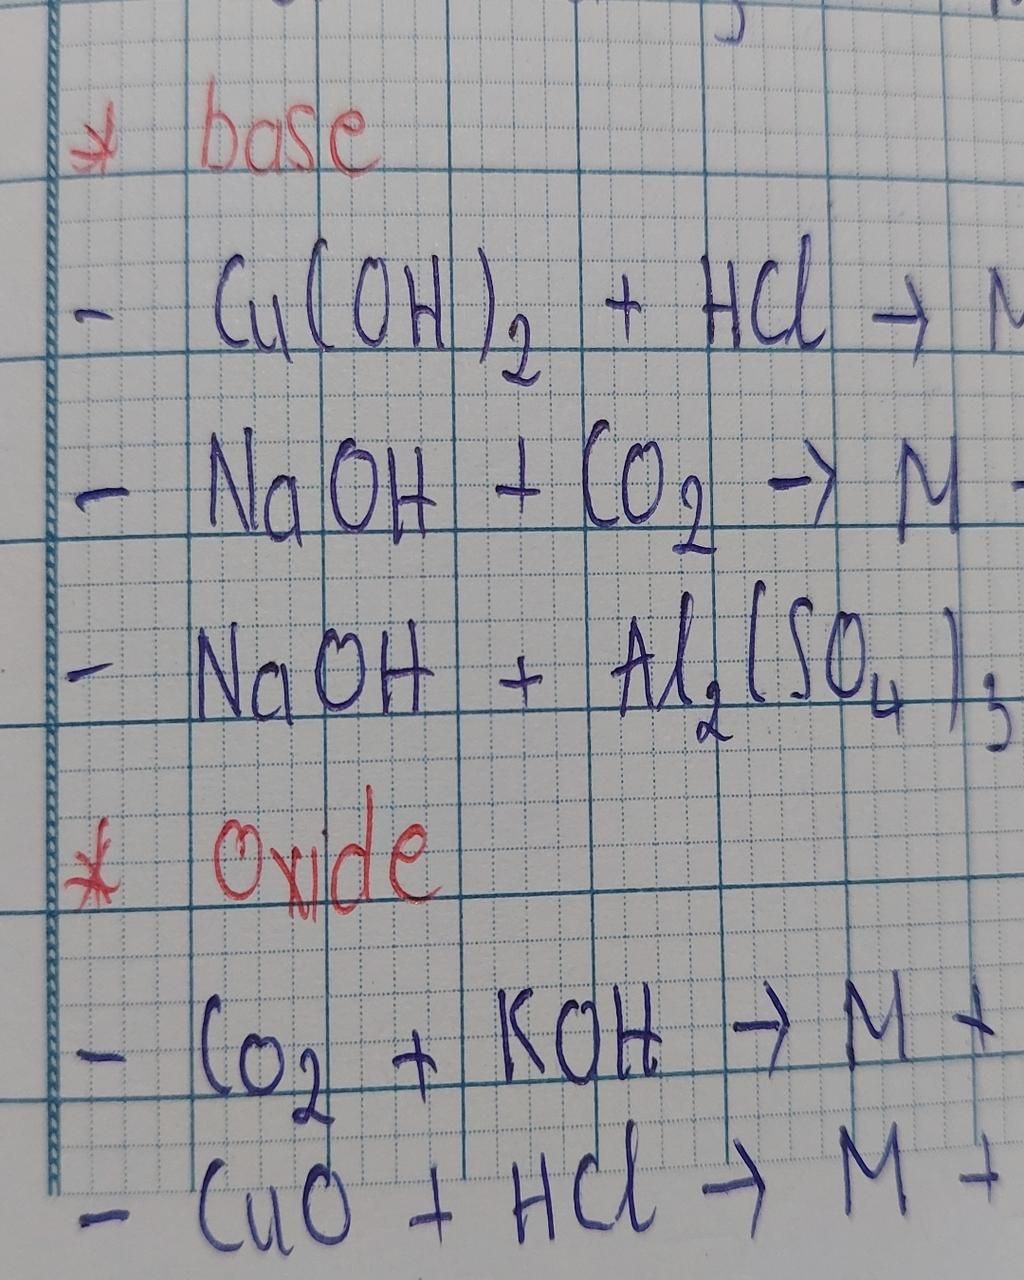 * base
- Cu(OH)₂ + HCl → M
- NaOH + CO₂ → M
- NaOH + Al₂(SO₄)₃
* Oxide
- CO₂ + KOH → M +
- CuO + HCl → M +